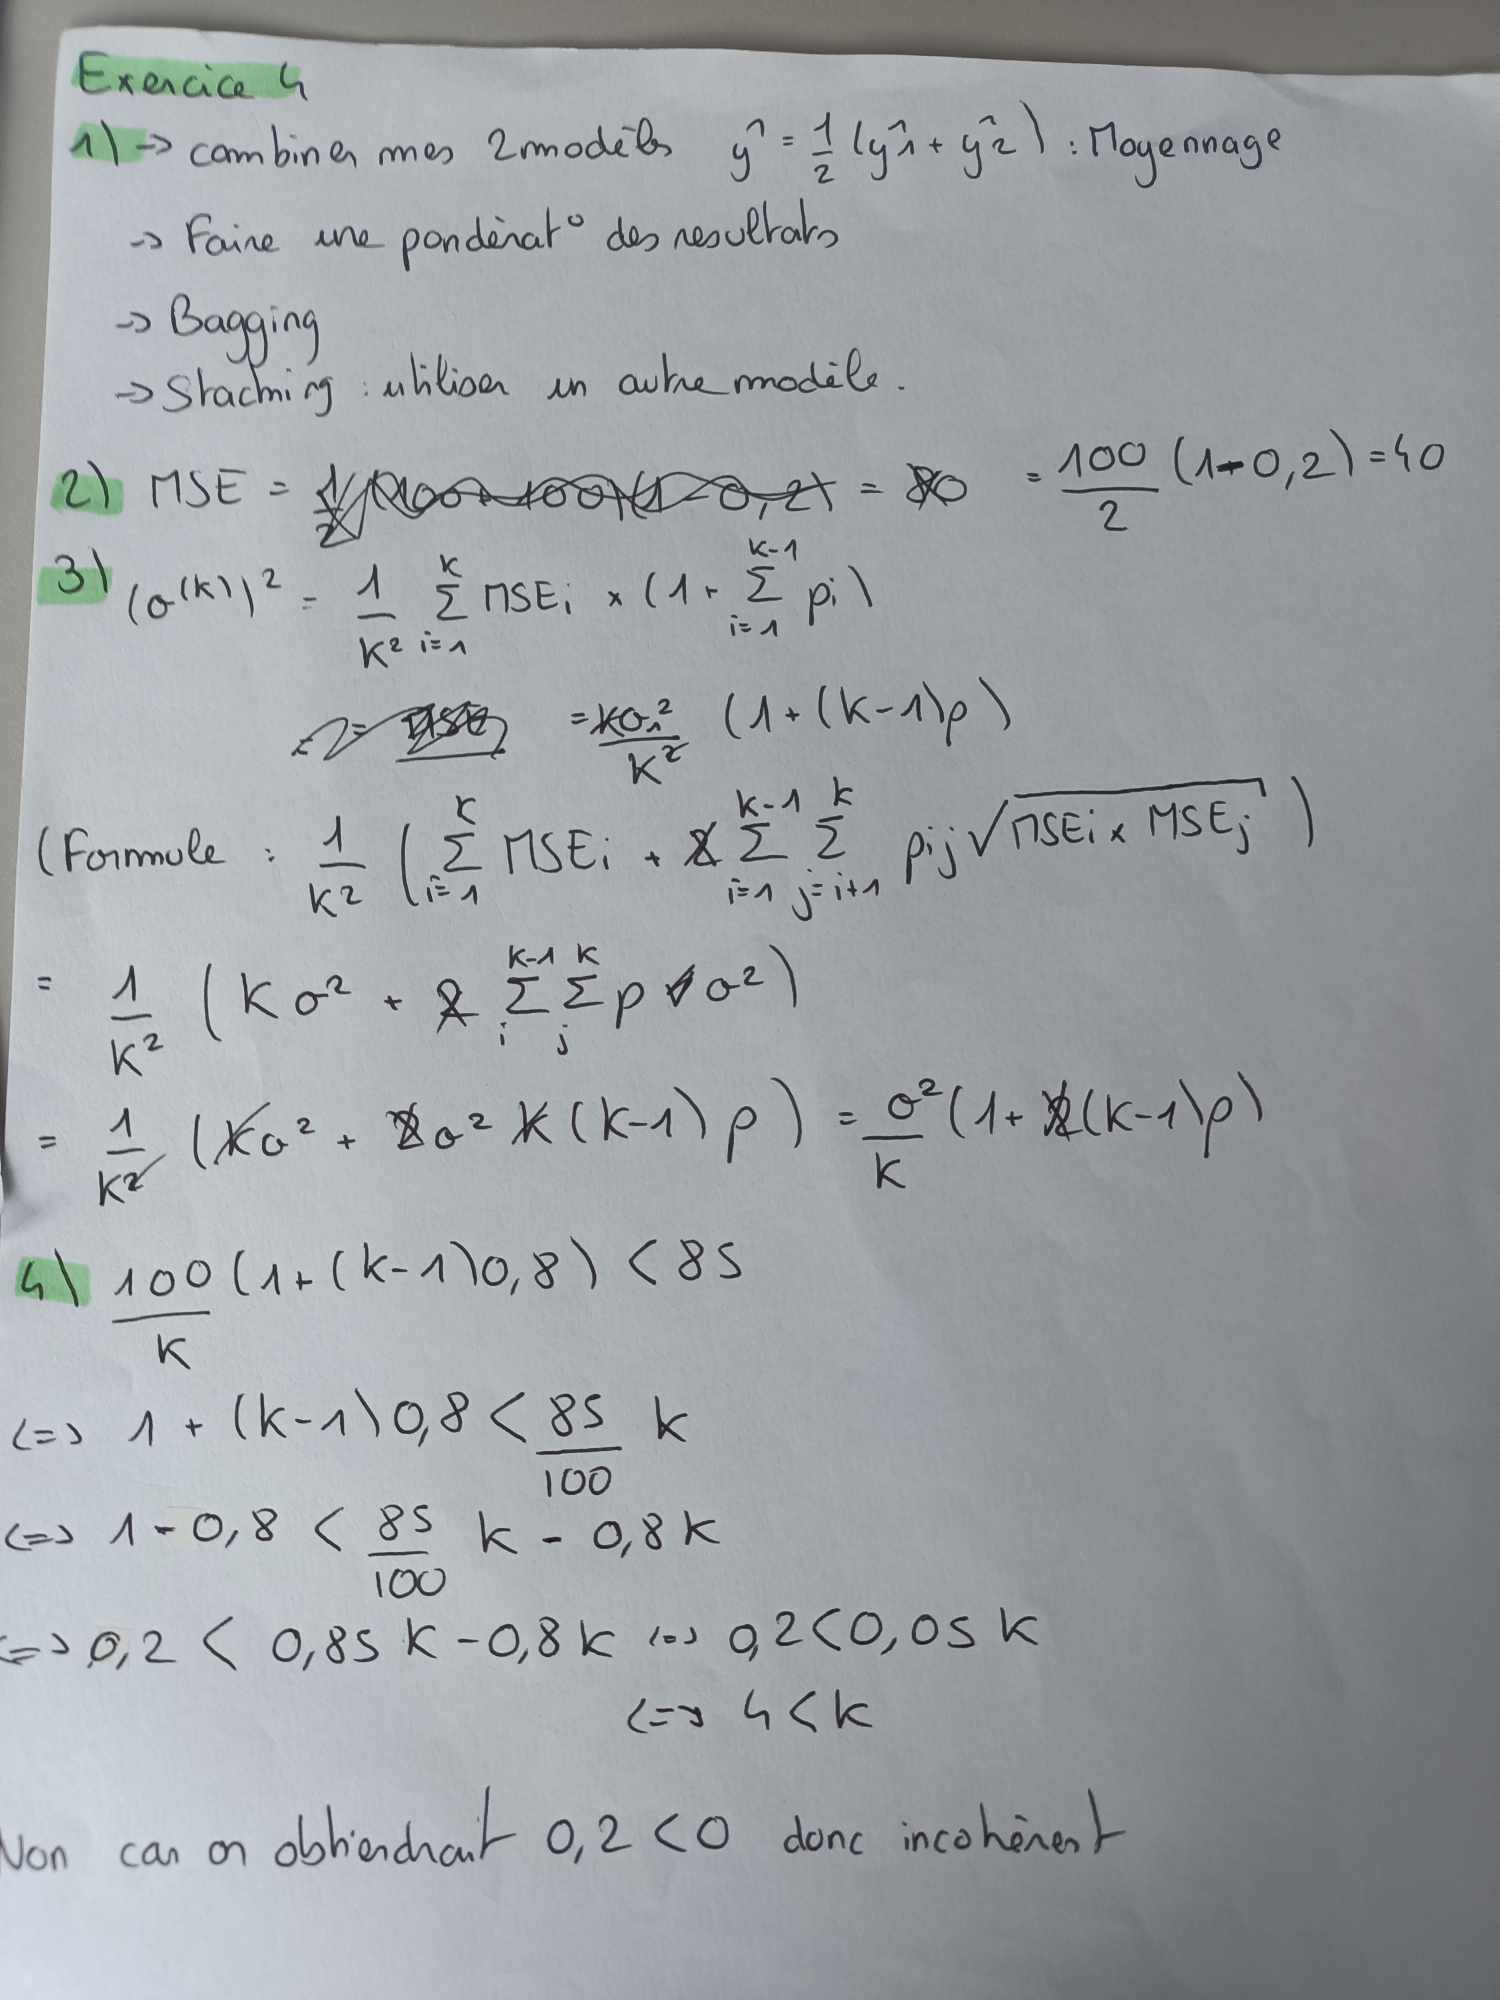 Exercice 4
1) → combiner mes 2 modèles ŷ = 1/2 (ŷ1 + ŷ2) : Moyennage
→ Faire une pondérat° des resultats
→ Bagging
→ Staching : utiliser un autre modèle.
2) MSE = 1/2 (100 + 100)(1 - 0,2) = 80 = 100/2 (1-0,2) = 40
3) (σ^(k))² = 1/k² Σ_{i=1}^{k} MSEi × (1 + Σ_{i=1}^{k-1} pi)
= kσ1²/k² (1 + (k-1)p)
(Formule : 1/k² (Σ_{i=1}^{k} MSEi + 2 Σ_{i=1}^{k-1} Σ_{j=i+1}^{k} pij √(MSEi × MSEj))
= 1/k² (kσ² + 2 Σ_i^{k-1} Σ_j^{k} p σ²)
= 1/k² (kσ² + 2σ² k(k-1)p) = σ²/k (1 + 2(k-1)p)
4) 100/k (1 + (k-1)0,8) < 85
<=> 1 + (k-1)0,8 < 85/100 k
<=> 1 - 0,8 < 85/100 k - 0,8k
<=> 0,2 < 0,85k - 0,8k <=> 0,2 < 0,05k
<=> 4 < k
Non car on obtiendrait 0,2 < 0 donc incohérent